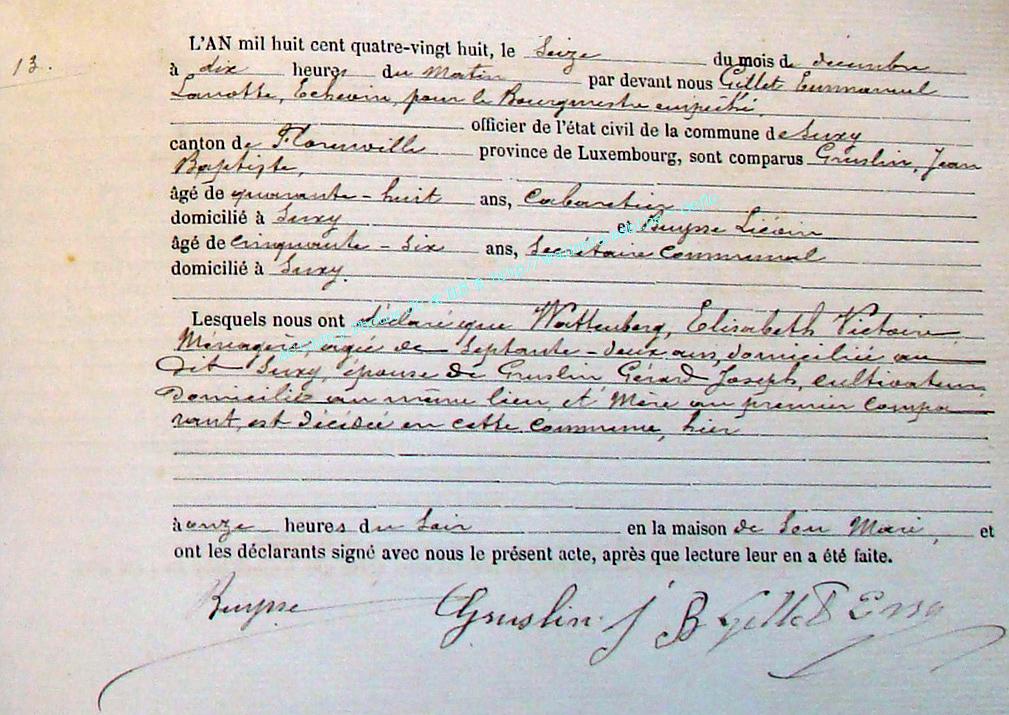 13.
L'AN mil huit cent quatre-vingt huit, le Seize du mois de décembre
à dix heures du Matin par devant nous Gillet Emmanuel
Lanotte, Echevin, pour le Bourgmestre empêché,
officier de l'état civil de la commune de Suxy
canton de Florenville province de Luxembourg, sont comparus Gruslin, Jean
Baptiste,
âgé de quarante-huit ans, Cabaretier
domicilié à Suxy et Buysse Liévin
âgé de Cinquante-six ans, Secrétaire Communal
domicilié à Suxy.
Lesquels nous ont déclaré que Wattenberg, Elisabeth Victoire
Ménagère, agée de Septante-deux ans, domiciliée au
dit Suxy, épouse de Gruslin Gérard Joseph, cultivateur
domicilié au même lieu, et Mère au premier Compa
rant, est décédée en cette Commune, hier
à onze heures du Soir en la maison de Son Mari, et
ont les déclarants signé avec nous le présent acte, après que lecture leur en a été faite.
Buysse Gruslin J B Gillet